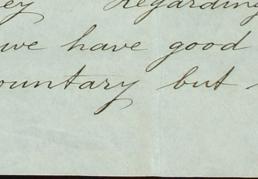 ey Regarding
we have good
ountary but